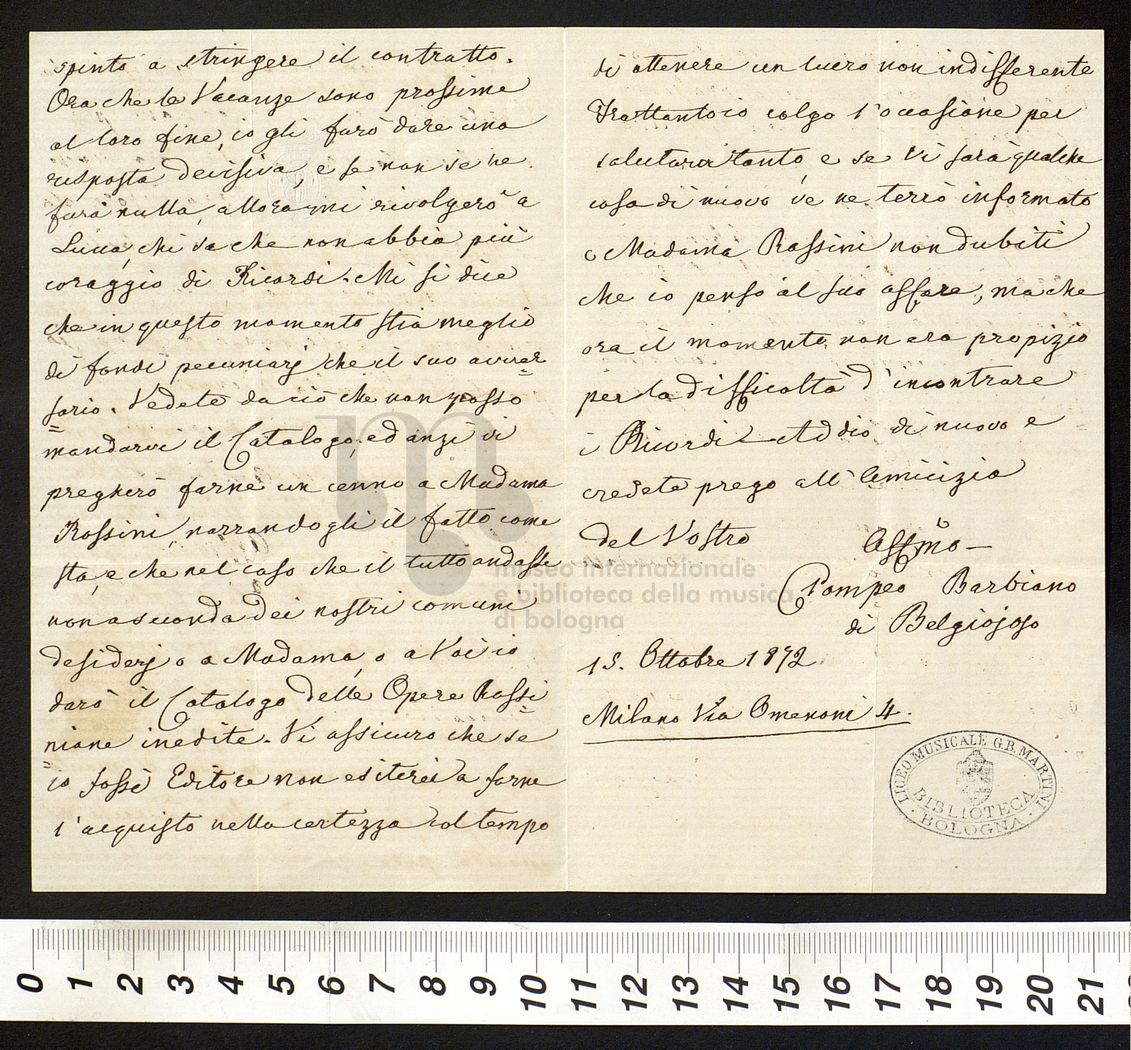 spinto a stringere il contratto.
Ora che le Vacanze sono prossime
al loro fine, io gli farò dare una
risposta decisiva, e se non se ne
farà nulla, allora mi rivolgerò a
Lucca, chi sa che non abbia più
coraggio di Ricordi. Mi si dice
che in questo momento stia meglio
di fondi pecuniarj che il suo avver=
sario. Vedete da ciò che non posso
mandarvi il Catalogo, ed anzi vi
pregherò farne un cenno a Madama
Rossini, narrandogli il fatto come
sta, e che nel caso che il tutto andasse
non a seconda dei nostri comuni
desiderj o a Madama, o a Voi io
darò il Catalogo delle Opere Rossi=
niane inedite. Vi assicuro che se
io fossi Editore non esiterei a farne
l'acquisto nella certezza col tempo
di ottenere un lucro non indifferente
Frattanto io colgo l'occasione per
salutarvi tanto, e se vi sarà qualche
cosa di nuovo ve ne terrò informato
o Madama Rossini non dubiti
che io penso al suo affare, ma che
ora il momento non era propizio
per la difficoltà d'incontrare
i Ricordi - Addio di nuovo e
credete prego all'Amicizia
del Vostro Affmo -
Pompeo Barbiano
di Belgiojoso
15. Ottobre 1872.
Milano Via Omenoni 4.
LICEO MUSICALE G.B. MARTINI
BIBLIOTECA
BOLOGNA
museo internazionale
e biblioteca della musica
di bologna
0 1 2 3 4 5 6 7 8 9 10 11 12 13 14 15 16 17 18 19 20 21